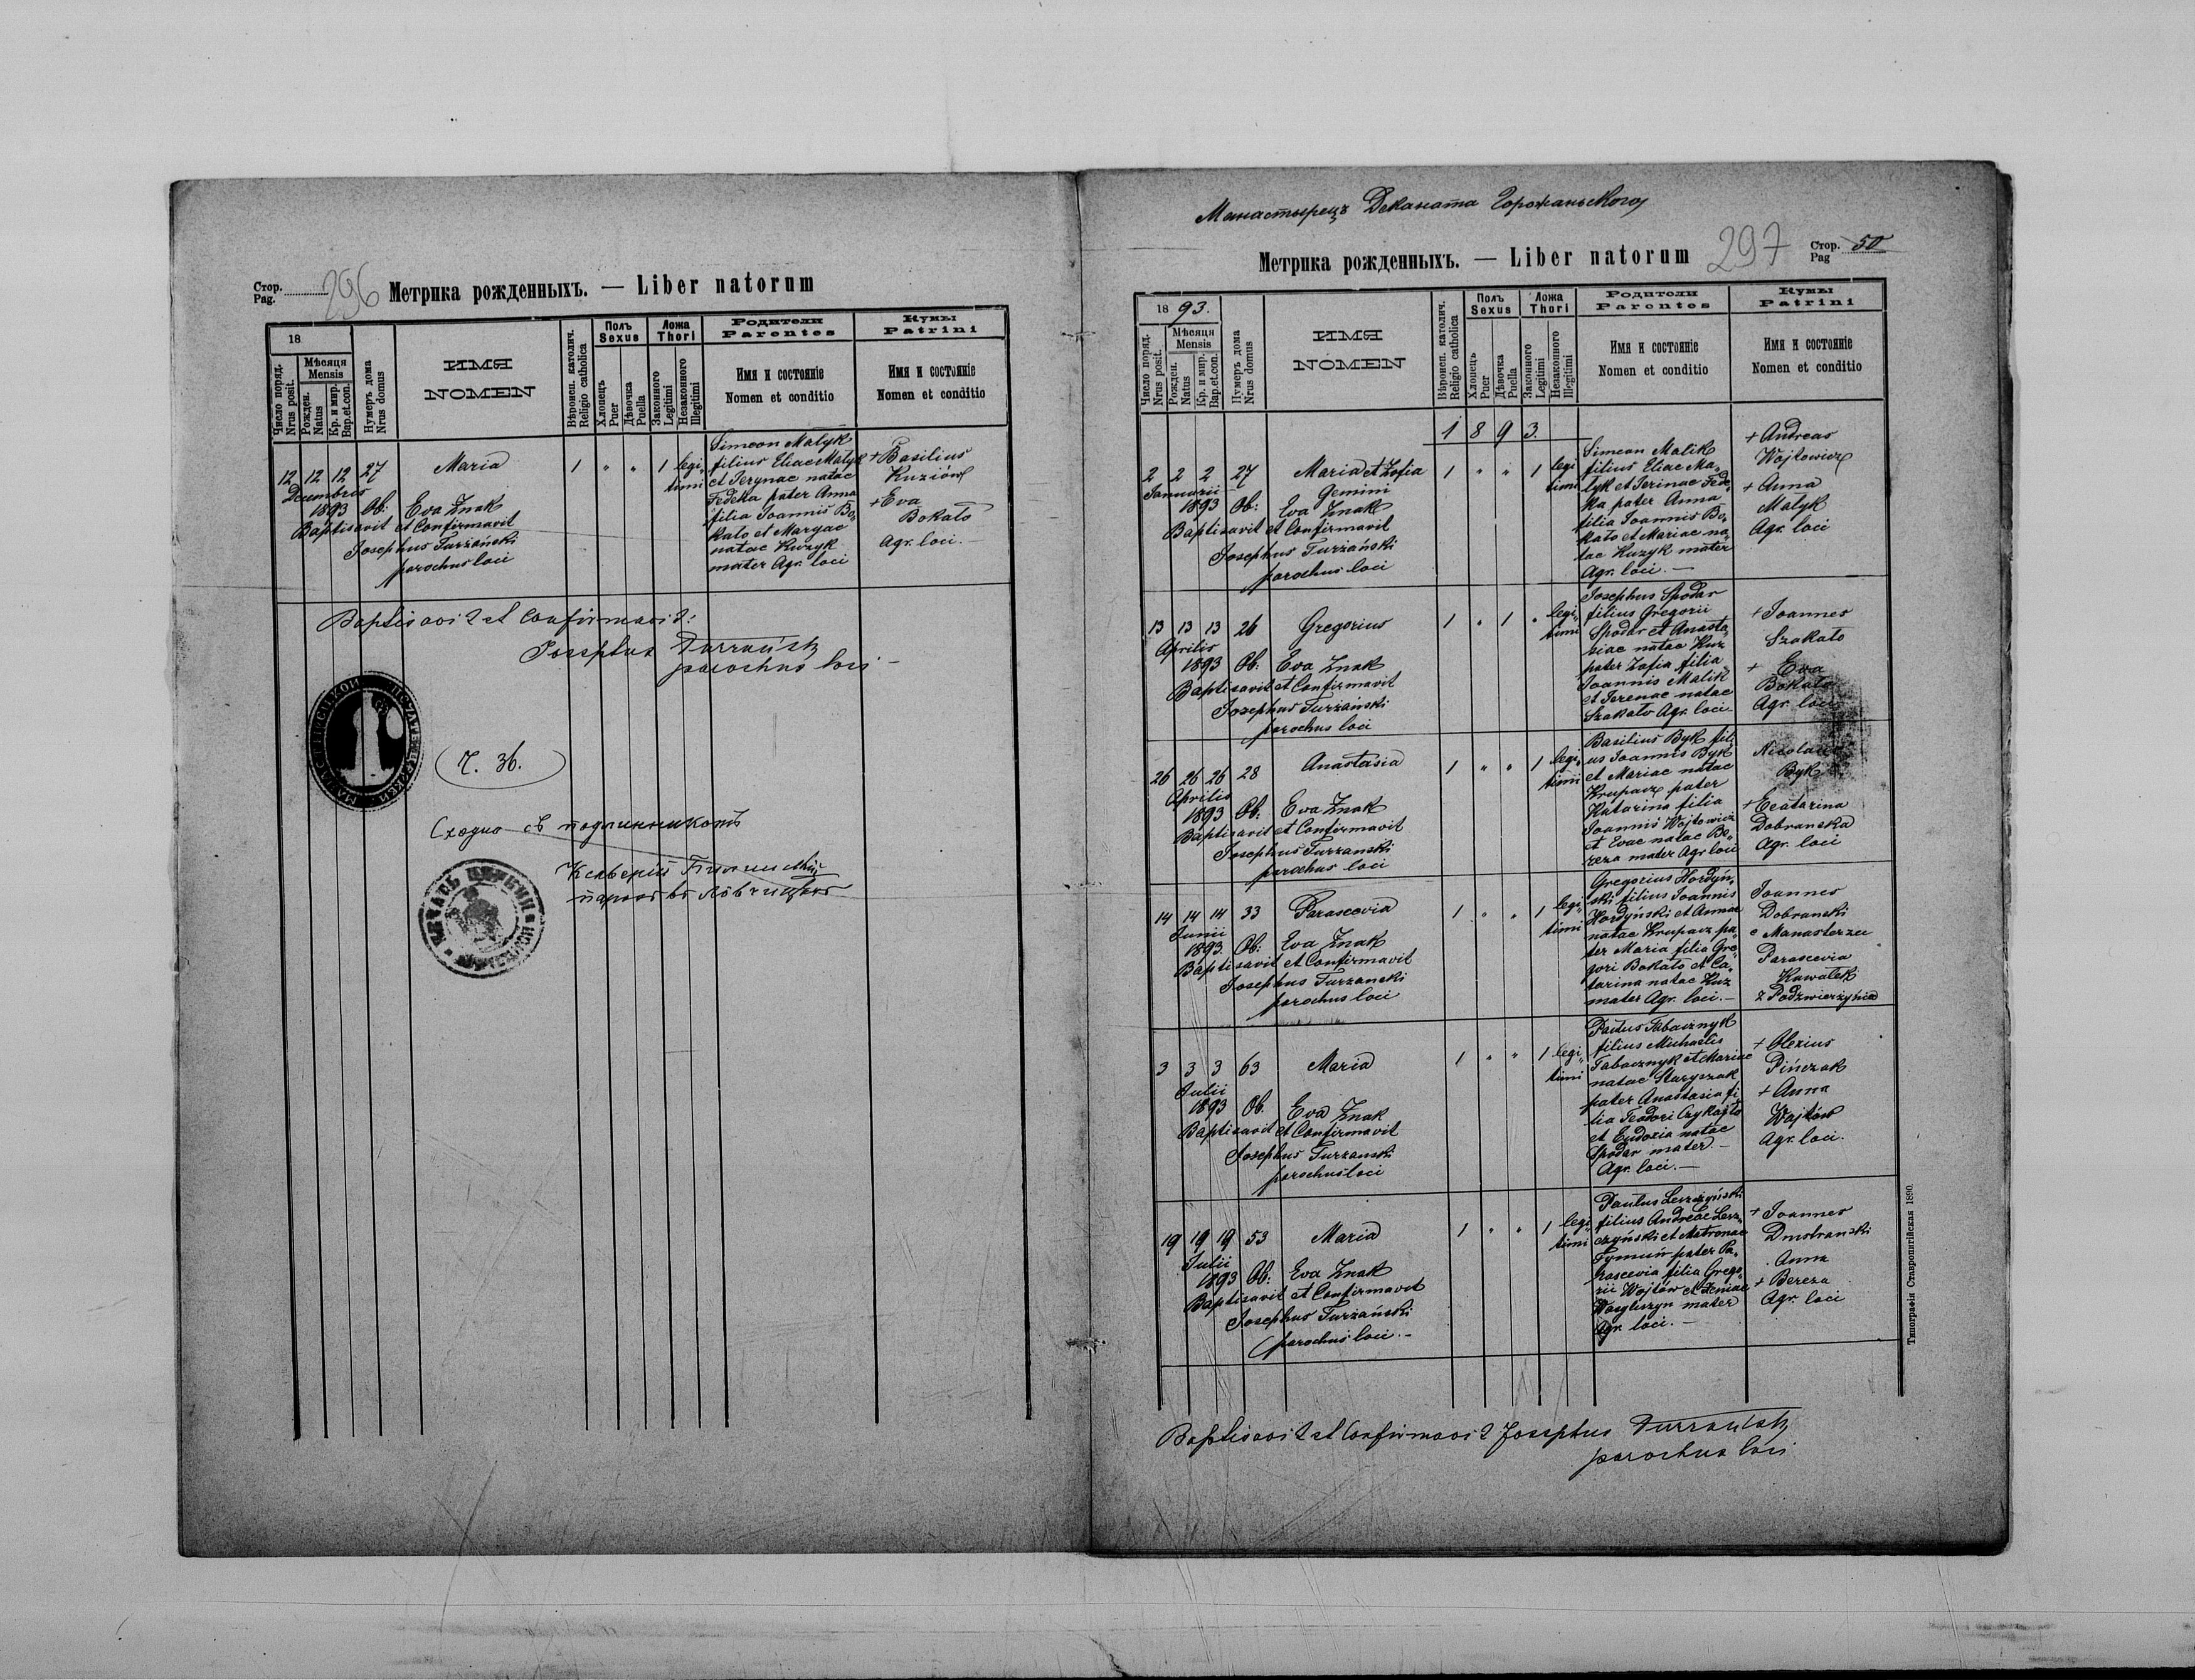 Стор. Pag. 296 Метрика рожденныхъ. — Liber natorum
18
Число поряд. Nrus posit.
Мѣсяця Mensis
Рожден. Natus
Кр. и мир. Bap. et con.
Нумеръ дома Nrus domus
ИМЯ
NOMEN
Вѣроисп. католич. Religio catholica
Полъ Sexus
Хлопецъ Puer
Дѣвочка Puella
Ложа Thori
Законного Legitimi
Незаконного Illegitimi
Родители Parentes
Имя и состоянiе
Nomen et conditio
Кумы Patrini
Имя и состоянiе
Nomen et conditio
12 12 12 27 Maria 1 " " 1 legi-
timi
Decembris
1893 Ob: Eva Znak
Baptisavit et Confirmavit
Josephus Turzański
parochus loci
Simeon Matyk
filius Eliae Matyk
et Terynae natae
Fedeka pater Anna
filia Joannis Bo-
kato et Maryae
natae Kuzyk
mater Agr. loci
+ Basilius
Kuziów
+ Eva
Bokato
Agr. loci. —
Baptisavit et Confirmavit:
Josephus Turzański
parochus loci —
Ч. 36.
Сходно съ подлинникомъ
Манастырецъ Деканата Горожаньского
Метрика рожденныхъ. — Liber natorum 297 Стор. Pag 50
18 93.
Число поряд. Nrus posit.
Мѣсяця Mensis
Рожден. Natus
Кр. и мир. Bap. et con.
Нумеръ дома Nrus domus
ИМЯ
NOMEN
Вѣроисп. католич. Religio catholica
Полъ Sexus
Хлопецъ Puer
Дѣвочка Puella
Ложа Thori
Законного Legitimi
Незаконного Illegitimi
Родители Parentes
Имя и состоянiе
Nomen et conditio
Кумы Patrini
Имя и состоянiе
Nomen et conditio
1 8 9 3.
2 2 2 27 Maria et Zofia 1 " " 1 legi
timi
Januarii Gemini
1893 Ob: Eva Znak
Baptisavit et Confirmavit
Josephus Turzański
parochus loci
Simeon Malik
filius Eliae Ma-
tyk et Terinae Fede-
ka pater Anna
filia Joannis Bo-
kato et Mariae na-
tae Kuzyk mater
Agr. loci. —
+ Andreas
Wojtowicz
+ Anna
Matyk
Agr. loci
13 13 13 26 Gregorius 1 " 1 " legi-
timi
Aprilis
1893 Ob: Eva Znak
Baptisavit et Confirmavit
Josephus Turzański
parochus loci
Josephus Spodar
filius Gregorii
Spodar et Anasta-
siae natae Kuz
pater Zofia filia
Joannis Malik
et Terenae natae
Szakato Agr. loci
+ Joannes
Szakato
+ Eva
Bokato
Agr. loci
26 26 26 28 Anastasia 1 " " 1 legi-
timi
Aprilis
1893 Ob: Eva Znak
Baptisavit et Confirmavit
Josephus Turzanski
parochus loci
Basilius Byk fili-
us Joannis Byk
et Mariae natae
Krupacz pater
Katarina filia
Joannis Wojtowicz
et Evae natae Be-
reza mater Agr. loci
Nicolaus
Byk
+ Ecatarina
Dobranska
Agr. loci
14 14 14 33 Parascevia 1 " " 1 legi-
timi
Junii
1893 Ob: Eva Znak
Baptisavit et Confirmavit
Josephus Turzanski
parochus loci
Gregorius Hordyń-
ski filius Joannis
Hordyński et Annae
natae Krupacz pa-
ter Maria filia Gre-
gori Bokato et Ca-
tarina natae Kuz
mater Agr. loci. —
Joannes
Dobranski
e Manasterzec
Parascevia
Kawalek
z Podzwierzynia
3 3 3 63 Maria 1 " " 1 legi-
timi
Julii
1893 Ob. Eva Znak
Baptisavit et Confirmavit
Josephus Turzanski
parochus loci
filius Michaelis
Tabacznyk et Mariae
natae Staryszak
pater Anastasia fi-
lia Teodori Czykajto
et Eudozia natae
Spodar mater —
Agr. loci. —
+ Olexius
Pińczak
+ Anna
Wojtów
Agr. loci.
19 19 19 53 Maria 1 " " 1 legi-
timi
Julii
1893 Ob: Eva Znak
Baptisavit et Confirmavit
Josephus Turzański
parochus loci. —
Paulus Leszczyński
filius Andreae Lesz-
czyński et Matronae
Tymuń pater Pa-
rascevia filia Grego-
rii Wojtów et Zeniae
Wasyliszyn mater
Agr. loci. —
+ Joannes
Dmitranski
Anna
+ Bereza
Agr. loci
Baptisavit et Confirmavit Josephus Turzański
parochus loci
Типографія Ставропигійская 1890.